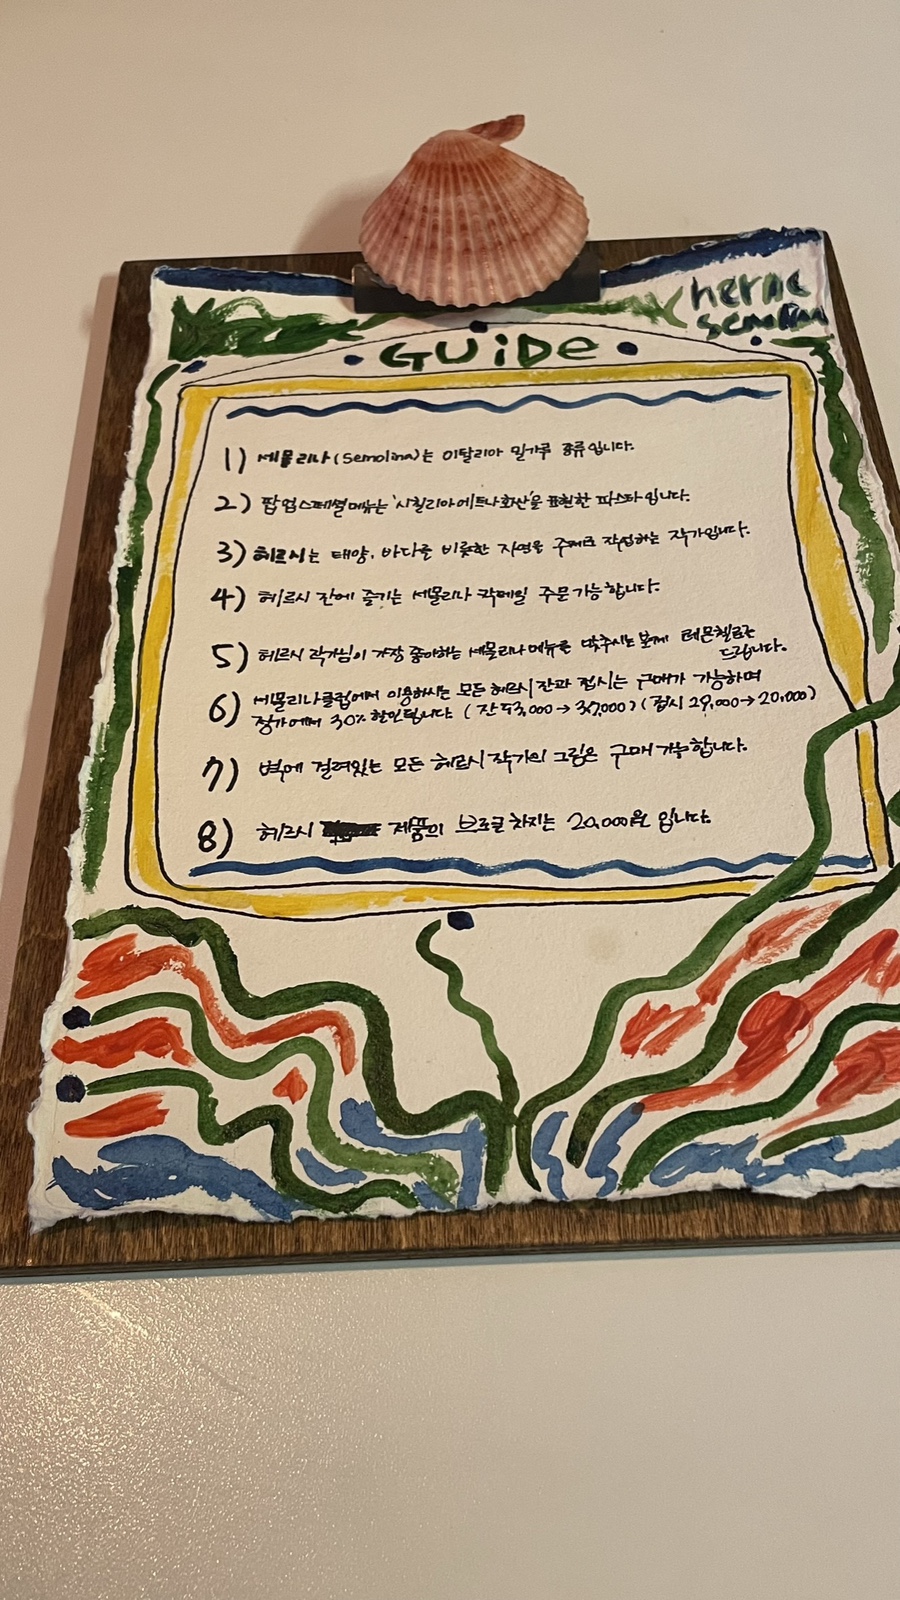 GUiDe
1) 세몰리나(Semolina)는 이탈리아 밀가루 종류입니다.
2) 팝업스페셜메뉴는 '시칠리아에트나화산'을 표현한 파스타입니다.
3) 헤르시는 태양, 바다를 비롯한 자연을 주제로 작업하는 작가입니다.
4) 헤르시 잔에 즐기는 세몰리나 칵테일 주문 가능합니다.
5) 헤르시 작가님이 가장 좋아하는 세몰리나메뉴를 맞추시는 분께 레몬첼로를
드립니다.
6) 세몰리나클럽에서 이용하시는 모든 헤르시 잔과 접시는 구매가 가능하며
정가에서 30% 할인됩니다. (잔 53,000→37,000) (접시 29,000→20,000)
7) 벽에 걸려있는 모든 헤르시 작가의 그림은 구매 가능합니다.
8) 헤르시 제품의 브로큰 차지는 20,000원 입니다.